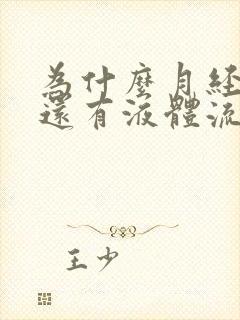 為什麼月經
還有液體流
王少